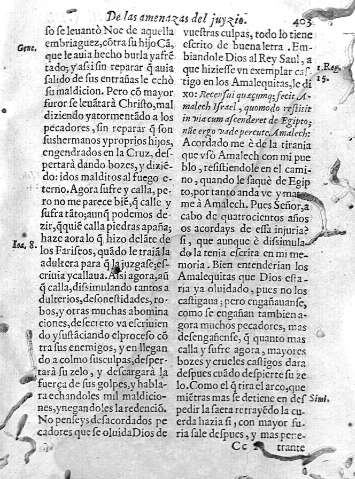 De las amenazas del juyzio. 403
so se leuātò Noe de aquella
Gene. embriaguez, cōtra su hijo Cã,
que le auia hecho burla y afrē
tado; y assi sin reparar q̃ auia
salido de sus entrañas le echò
su maldicion. Pero cō mayor
furor se leuātarà Christo, mal
diziendo y atormentādo a los
pecadores, sin reparar q̃ son
sus hermanos y proprios hijos,
engendrados en la Cruz, desper
pertarà dando bozes, y dizié-
do: idos malditos al fuego e-
terno. Agora sufre y calla, pe-
ro no me parece biē, q̃ calle y
sufra tāto; aunq̃ podemos de-
zir, q̃ quiē calla piedras apaña;
Ioa. 8. haze aora lo q̃ hizo delāte de
los Fariseos, quādo le traiā la
adultera para q̃ la juzgase; es-
criuia y callaua. Assi agora, aũ
q̃ calla, dissimulando tantos a
dulterios, desonestidades, ro-
bos, y otras muchas abomina
ciones, de secreto va escriuien
do y sustāciando el processo cō
tra sus enemigos, y en llegan
do a colmo sus culpas, desper-
tarà su zelo, y descargarà la
fuerça de sus golpes, y habla-
ra echandoles mil maldicio-
nes, y negandoles la redenciō.
No penseys desacordados pe
cadores que se oluida Dios de
vuestras culpas, todo lo tiene
escrito de buena letra. Em-
biandole Dios al Rey Saul, a
1. Reg. que hiziesse vn exemplar cas
15. tigo en los Amalequitas, le di
xo: Recensui quæcumq; fecit A-
malech Israel, quomodo restitit
in via cum ascenderet de Egipto;
nũc ergo vade percute Amalech:
Acordado me è de la tirania
que vsò Amalech con mi pue
blo, resistiendole en el cami-
no, quando le saquè de Egip
to, por tanto anda ve y mata
me à Amalech. Pues Señor, a
cabo de quatrocientos años
os acordays de essa injuria?
si, que aunque è dissimula-
do la tenia escrita en mi me-
moria. Bien entenderian los
Amalequitas que Dios es ta-
ria ya oluidado, pues no los
castigaua; pero engañauanse,
como se engañan tambien a
gora muchos pecadores, mas
desengañense, q̃ quanto mas
calla y sufre agora, mayores
bozes y crueles castigos dara
despues cuãdo despierte su ze
lo. Como el q̃ tira el arco, que
Simi. miētras mas se detiene en des
pedir la saeta retrayēdo la cu
erda hazia si, con mayor fu-
ria sale despues, y mas pene-
Cc trante